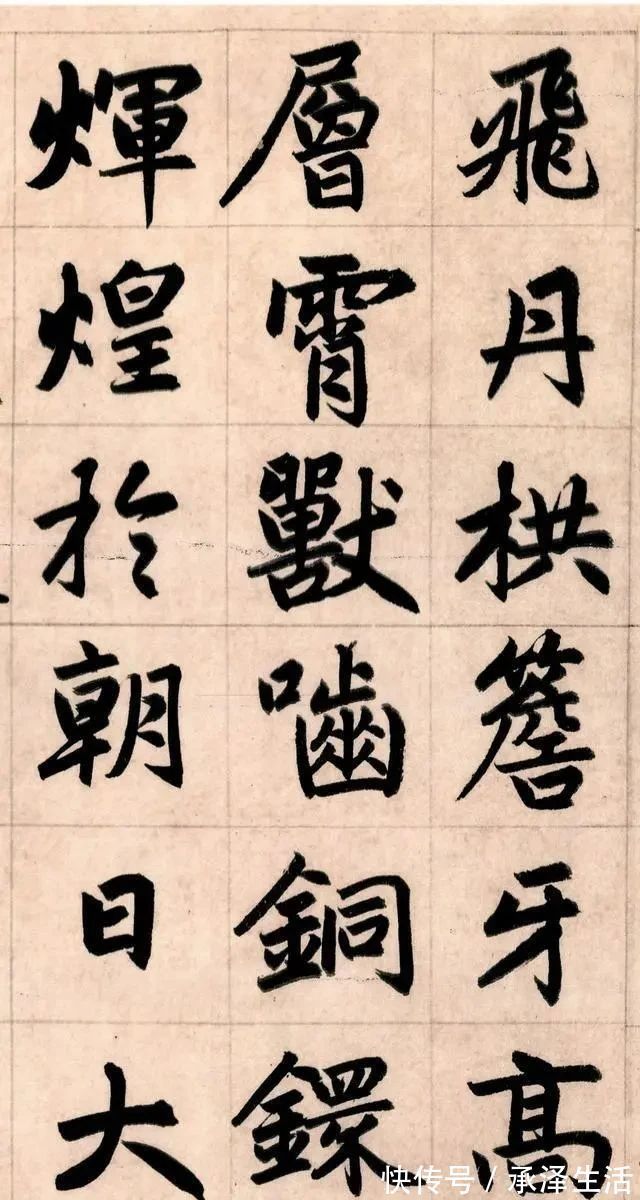 飛丹栱簷牙高
層霄獸嚙銅鐶
煇煌於朝日大
快传号 / 承泽生活